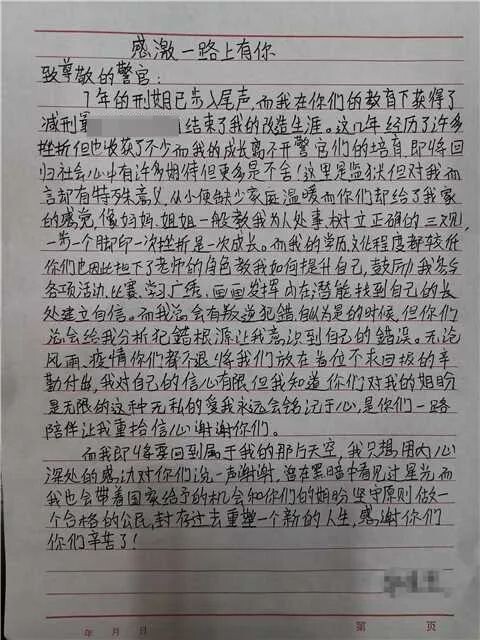 感激一路上有你
致尊敬的警官：
7年的刑期已步入尾声，而我在你们的教育下获得了
减刑 结束了我的改造生涯。这几年经历了许多
挫折但也收获了不少而我的成长离不开警官们的培育，即将回
归社会心中有许多期待但更多是不舍！这里是监狱但对我而
言却有特殊意义，从小便缺少家庭温暖而你们却给了我家
的感觉，像妈妈、姐姐一般教我为人处事，树立正确的三观，
一步一个脚印一次挫折是一次成长。而我的学历文化程度都较低
你们也因此担下了老师的角色教我如何提升自己，鼓励我参与
各项活动、比赛、学习广绣、画画发挥内在潜能找到自己的长
处建立自信。而我总会有叛逆犯错自以为是的时候，但你们
总会给我分析犯错根源让我意识到自己的错误。无论
风雨、疫情你们都不退将我们放在首位不求回报的辛
勤付出，我对自己的信心有限但我知道你们对我的期盼
是无限的这种无私的爱我永远会铭记于心，是你们一路
陪伴让我重拾信心谢谢你们。
而我即将要回到属于我的那片天空，我只想用内心
深处的感动对你们说一声谢谢，曾在黑暗中看见过星光而
我也会带着国家给予的机会和你们的期盼坚守原则做一
个合格的公民，封存过去重塑一个新的人生，感谢你们
你们辛苦了！
年 月 日 第 页